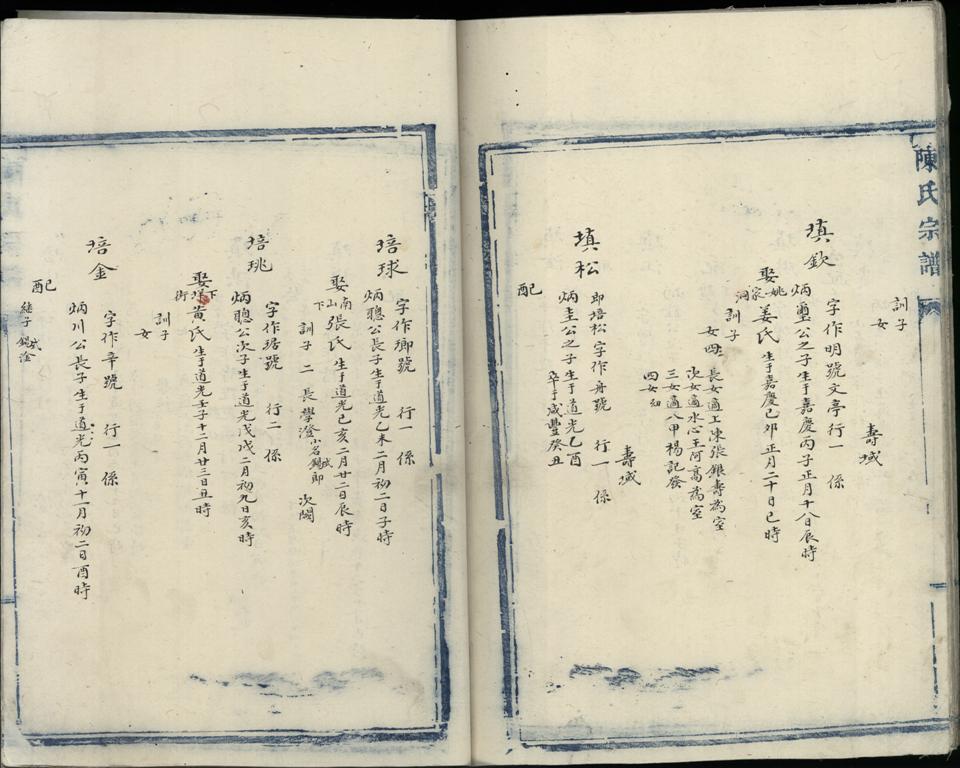 陳氏宗譜
訓子
女
壽域
填欽
字作明號文亭行一 係
炳璽公之子生于嘉慶丙子正月十八日辰時
娶姚家洞姜氏生于嘉慶己卯正月二十日巳時
訓子
女四
長女適工涷張銀壽為室
次女適水心王阿高為室
三女適八甲楊記發
四女幼
壽域
填松
即培松字作舟號 行一 係
炳圭公之子生于道光乙酉
卒于咸豐癸丑
配
培球
字作卿號 行一 係
炳聰公長子生于道光乙未二月初二日子時
娶南山下張氏生于道光己亥二月廿二日辰時
訓子二 長學澄小名錫即 次闕
培珧
字作琚號 行二 係
炳聰公次子生于道光戊戌二月初九日亥時
娶下垟街黄氏生于道光壬子十二月廿三日丑時
訓子
女
培金
字作辛號 行一 係
炳川公長子生于道光丙寅十一月初二日酉時
配
継子錫淦